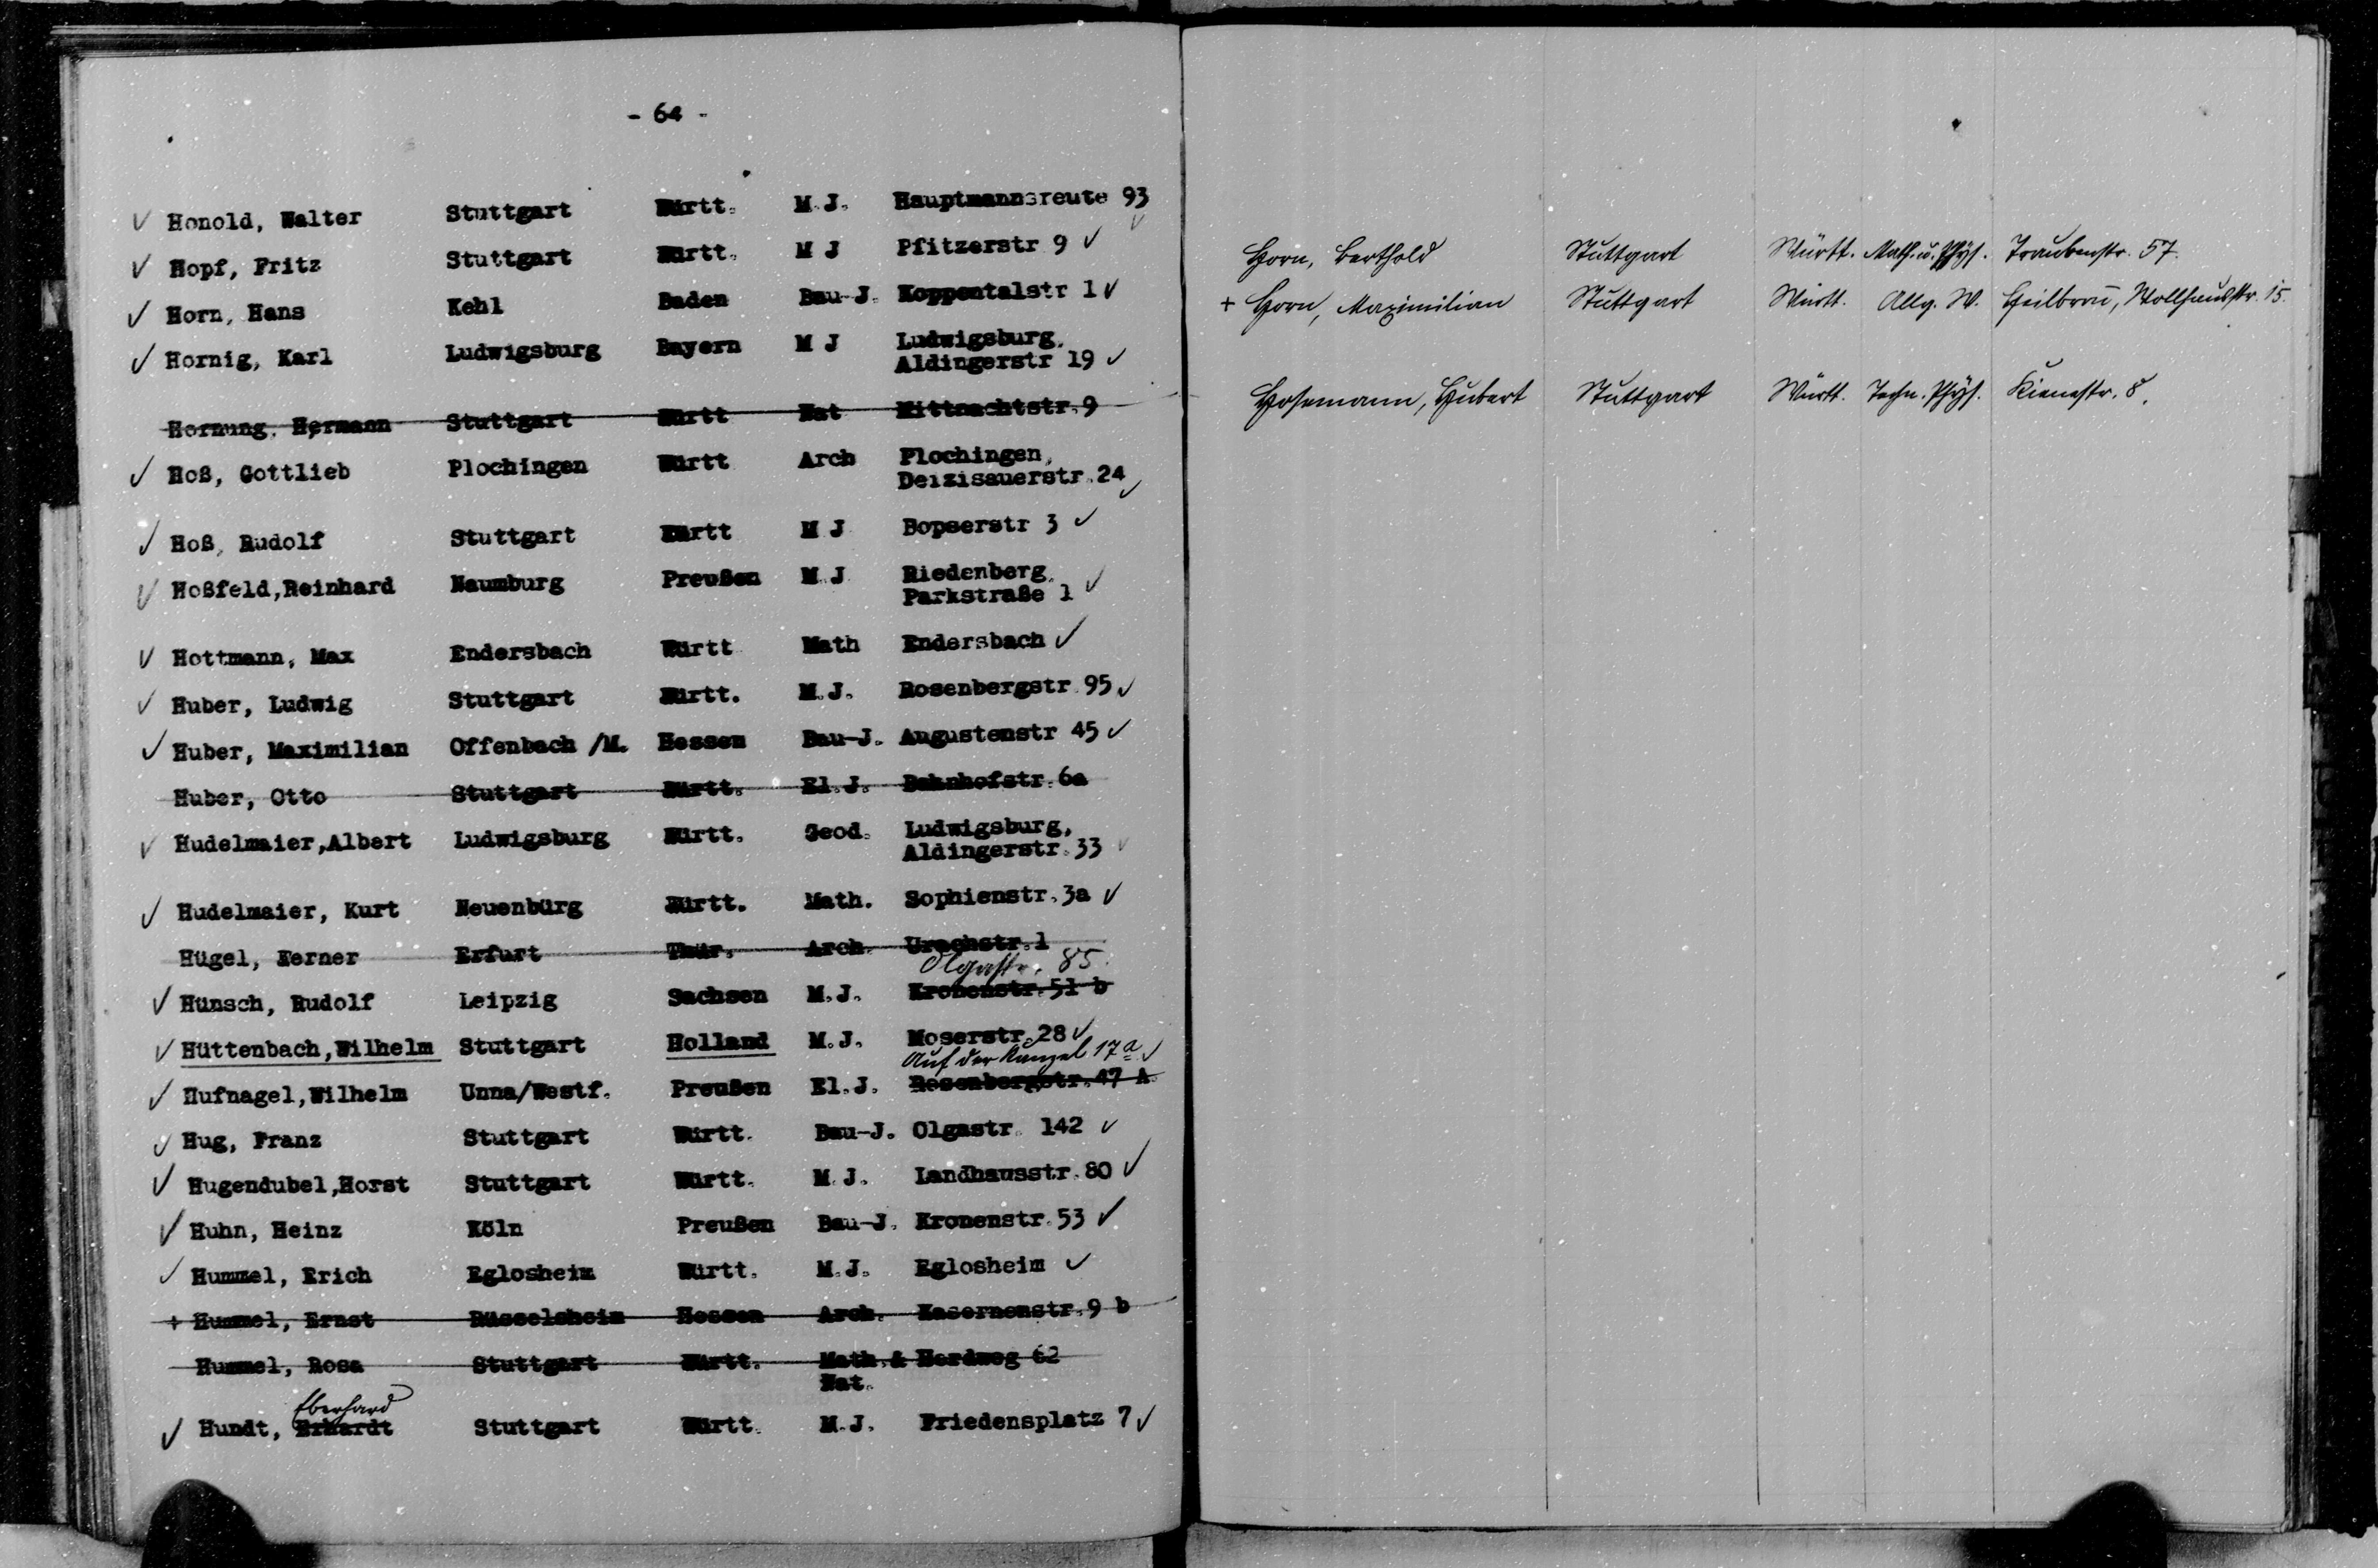 - 64 -
Honold, Walter Stuttgart Württ. M.J. Hauptmannsreute 93
Hopf, Fritz Stuttgart Württ. M J Pfitzerstr 9
Horn, Hans Kehl Baden Bau-J. Koppentalstr 1
Hornig, Karl Ludwigsburg Bayern M J Ludwigsburg,
Aldingerstr 19
Hornung, Hermann Stuttgart Württ Nat Mittnachtstr.9
Hoß, Gottlieb Plochingen Württ Arch Plochingen,
Deizisauerstr.24
Hoß, Rudolf Stuttgart Württ M J Bopserstr 3
Hoßfeld,Reinhard Naumburg Preußen M.J Riedenberg,
Parkstraße 1
Hottmann, Max Endersbach Württ Math Endersbach
Huber, Ludwig Stuttgart Württ. M.J. Rosenbergstr.95
Huber, Maximilian Offenbach /M. Hessen Bau-J. Augustenstr 45
Huber, Otto Stuttgart Württ. El.J. Bahnhofstr.6a
Hudelmaier,Albert Ludwigsburg Württ. Geod. Ludwigsburg,
Aldingerstr.33
Hudelmaier, Kurt Neuenbürg Württ. Math. Sophienstr.3a
Hügel, Werner Erfurt Thür. Arch. Urachstr.1
Olgastr. 85.
Hünsch, Rudolf Leipzig Sachsen M.J. Kronenstr.51 b
Hüttenbach,Wilhelm Stuttgart Holland M.J. Moserstr.28
Auf der Kanzel 17a
Hufnagel,Wilhelm Unna/Westf. Preußen El.J. Rosenbergstr.47 A.
Hug, Franz Stuttgart Württ. Bau-J. Olgastr. 142
Hugendubel,Horst Stuttgart Württ. M.J. Landhausstr.80
Huhn, Heinz Köln Preußen Bau-J. Kronenstr.53
Hummel, Erich Eglosheim Württ. M.J. Eglosheim
+ Hummel, Ernst Rüsselsheim Hessen Arch. Kasernenstr.9 b
Hummel, Rosa Stuttgart Württ. Math.& Herdweg 62
Nat.
Eberhard
Hundt, Erhardt Stuttgart Württ. M.J. Friedensplatz 7
Horn, Berthold Stuttgart Württ. Math. u. Phys. Traubenstr. 57.
+ Horn, Maximilian Stuttgart Württ. Allg. W. Heilbron̄, Wollhausstr. 15.
Hosemann, Hubert Stuttgart Württ. Techn. Phys. Kienestr. 8.